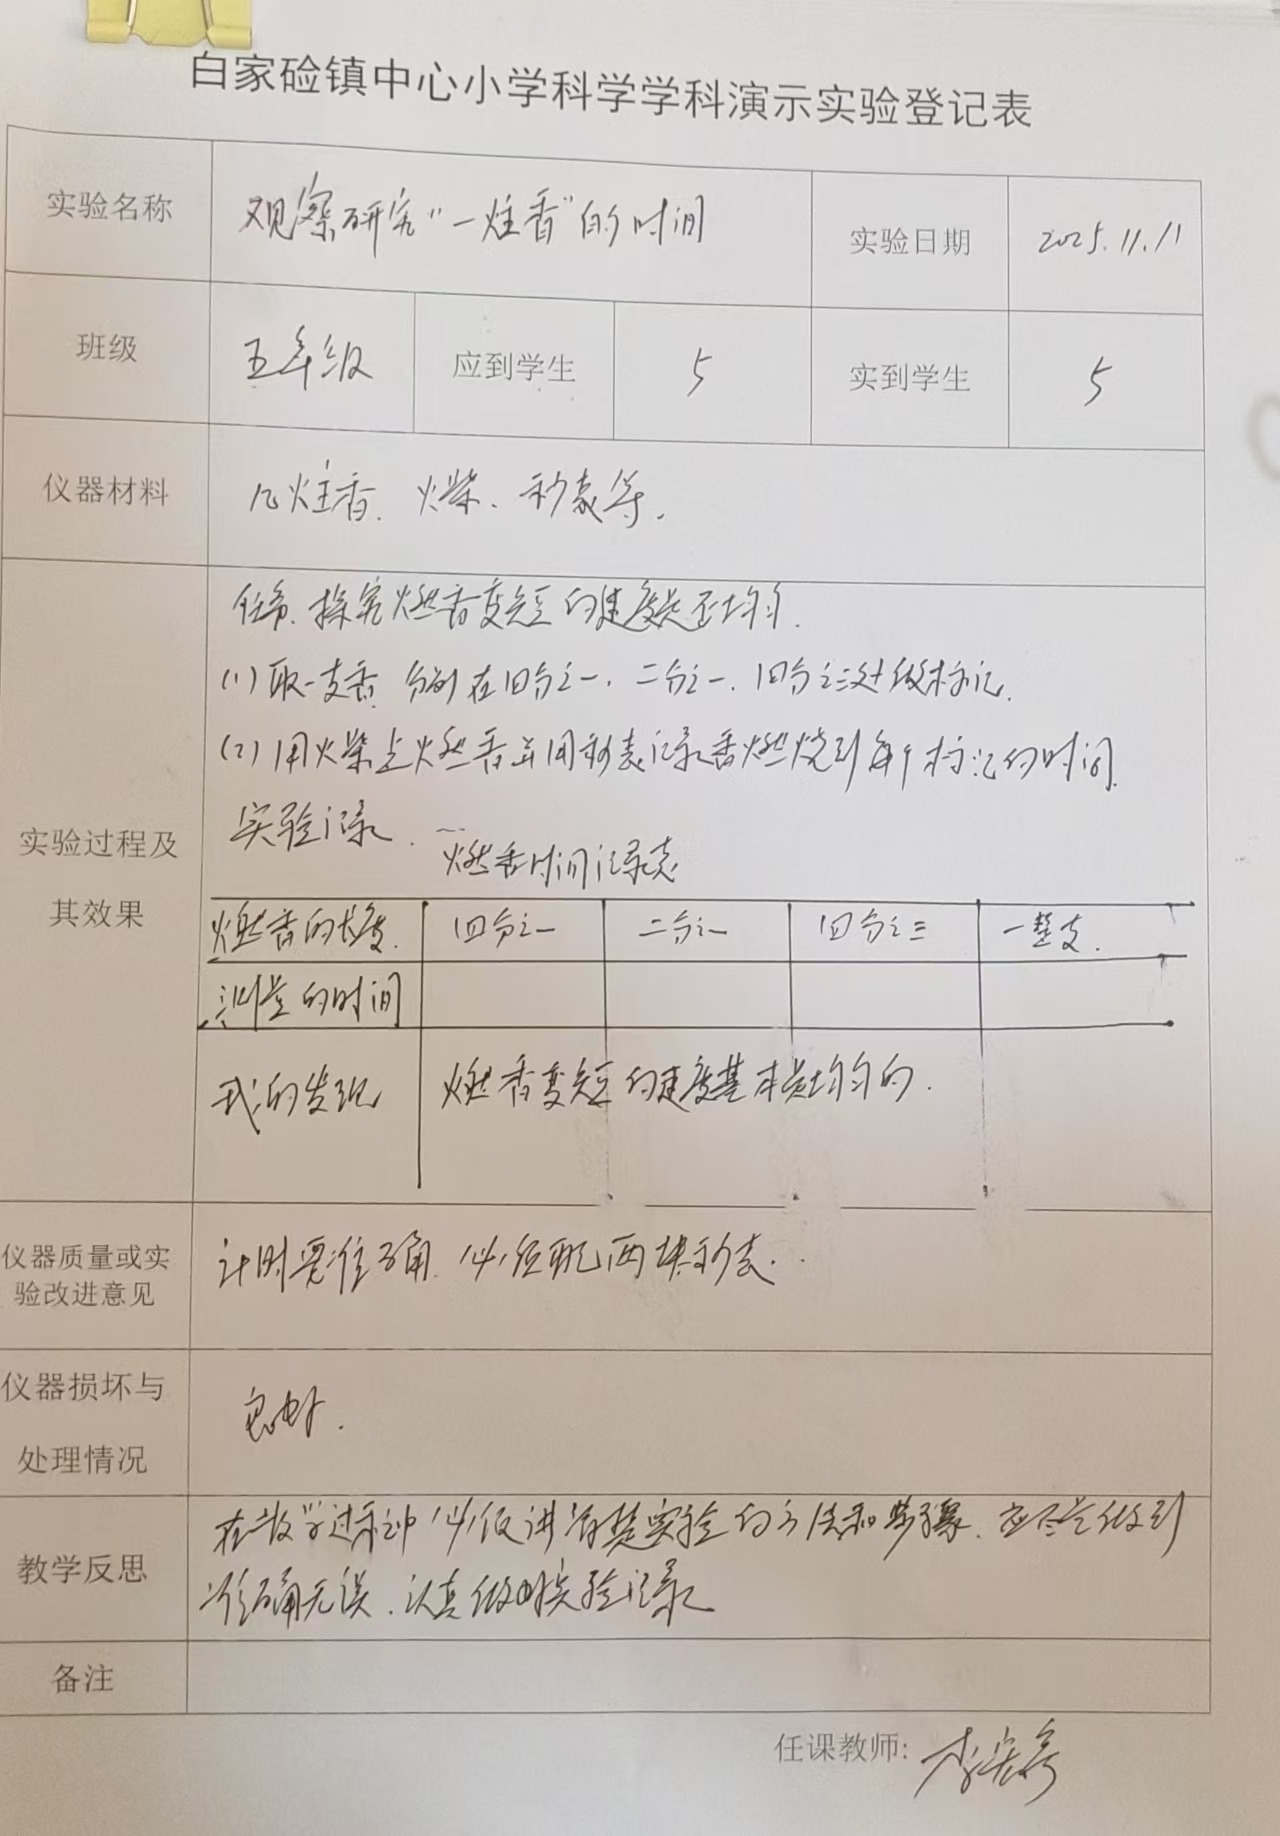 白家硷镇中心小学科学学科演示实验登记表
实验名称 观察研究“一炷香”的时间 实验日期 2025.11.11
班级 五年级 应到学生 5 实到学生 5
仪器材料 几炷香、火柴、秒表等.
实验过程及
其效果
任务. 探究燃香变短的速度是否均匀.
(1) 取一支香 分别在四分之一、二分之一、四分之三处做标记.
(2) 用火柴点火燃香并用秒表记录香燃烧到每个标记的时间.
实验记录.
燃香时间记录表
燃香的长度. 四分之一 二分之一 四分之三 一整支.
测量的时间
我的发现 燃香变短的速度基本是均匀的.
仪器质量或实
验改进意见
计时要准确. 必须配两块秒表.
仪器损坏与
处理情况
良好.
教学反思
在教学过程中 必须讲清楚实验的方法和步骤. 应尽量做到
准确无误. 认真做好实验记录
备注
任课教师: 李